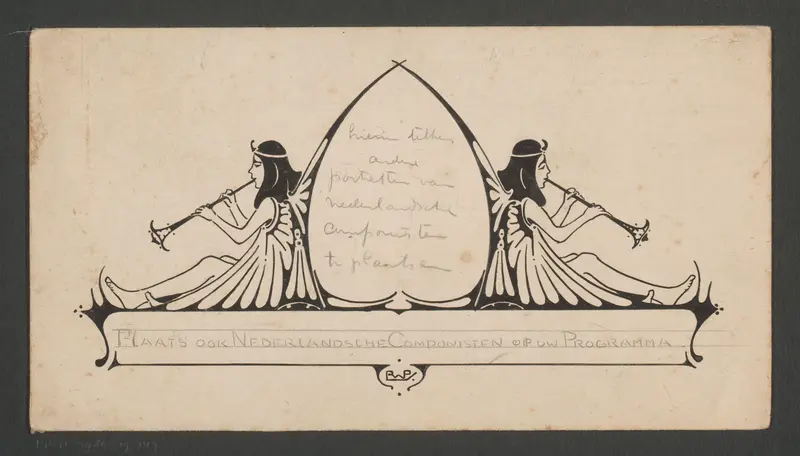 hierin telkens
andere
portretten van
Nederlandsche
Componisten
te plaatsen
PLAATS OOK NEDERLANDSCHE COMPONISTEN OP UW PROGRAMMA